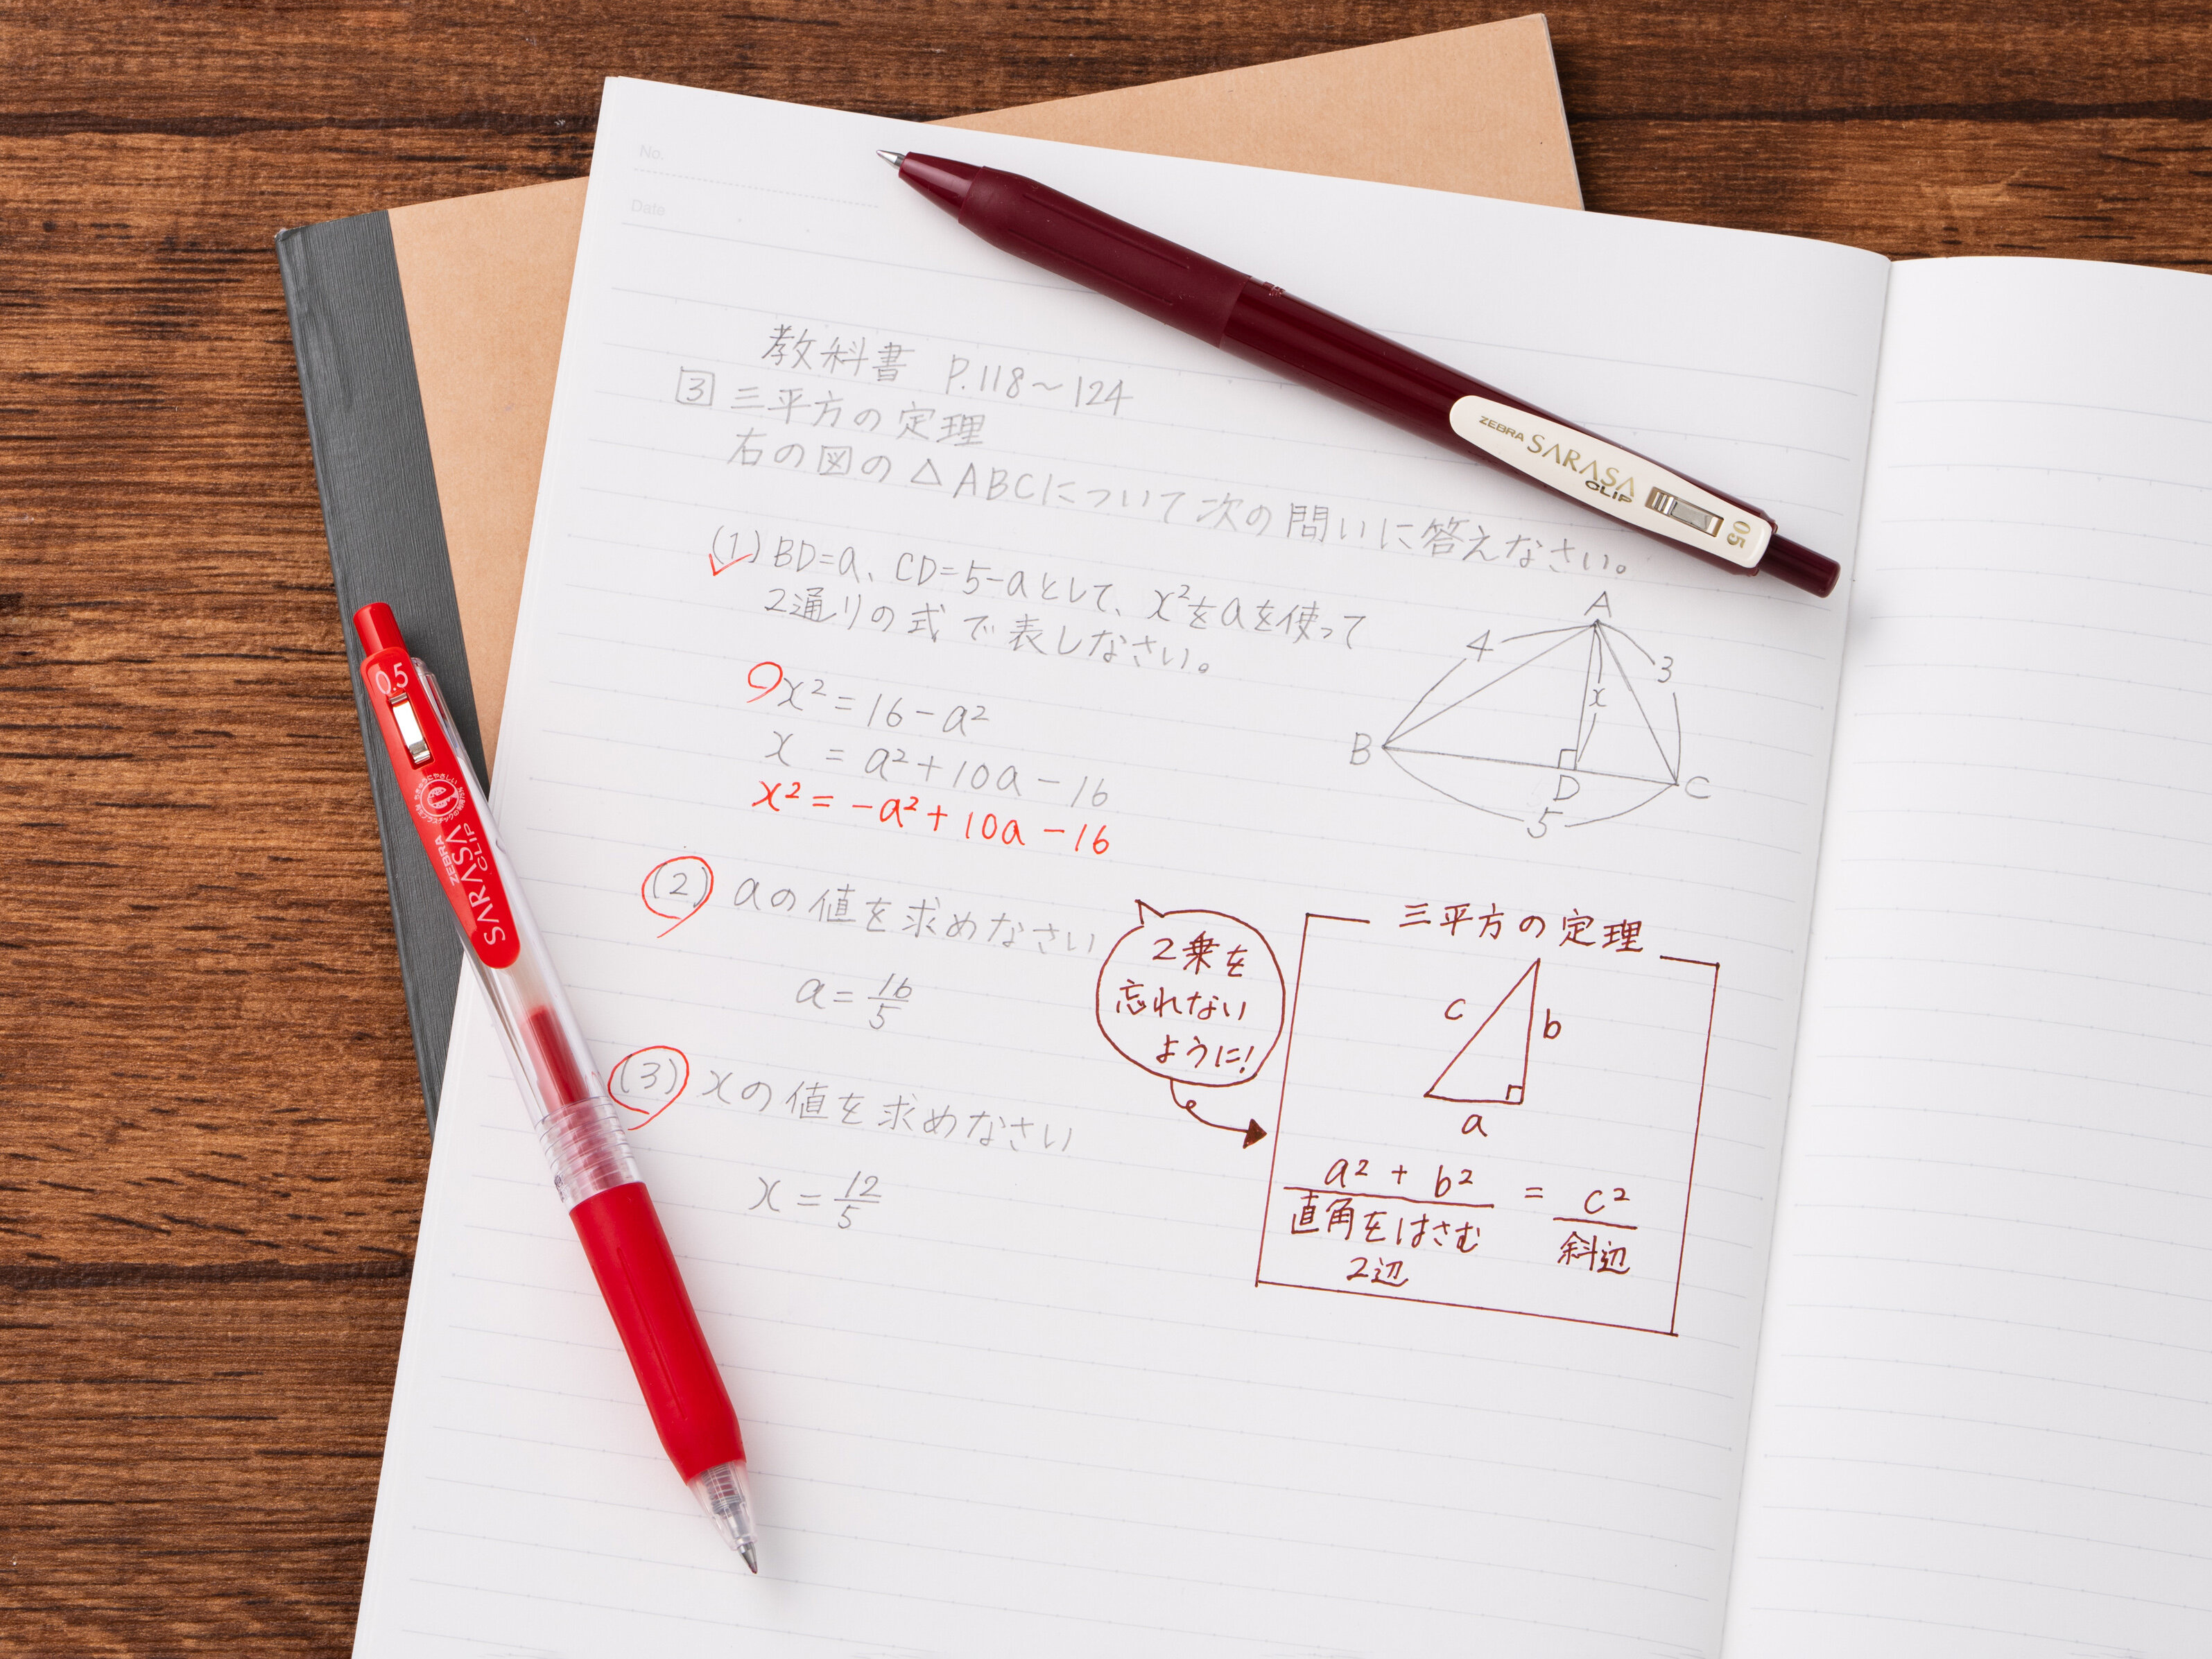 No.
Date
教科書 P.118〜124
3 三平方の定理
右の図の△ABCについて次の問いに答えなさい。
(1) BD=a、CD=5-aとして、x²をaを使って
2通りの式で表しなさい。
x²=16-a²
x =a²+10a-16
x²=-a²+10a-16
A
4
3
x
B
D
C
5
(2) aの値を求めなさい
a=16/5
(3) xの値を求めなさい
x=12/5
2乗を
忘れない
ように!
三平方の定理
c
b
a
a²+b² = c²
直角をはさむ 斜辺
2辺
ZEBRA SARASA CLIP 0.5
0.5
ZEBRA SARASA CLIP